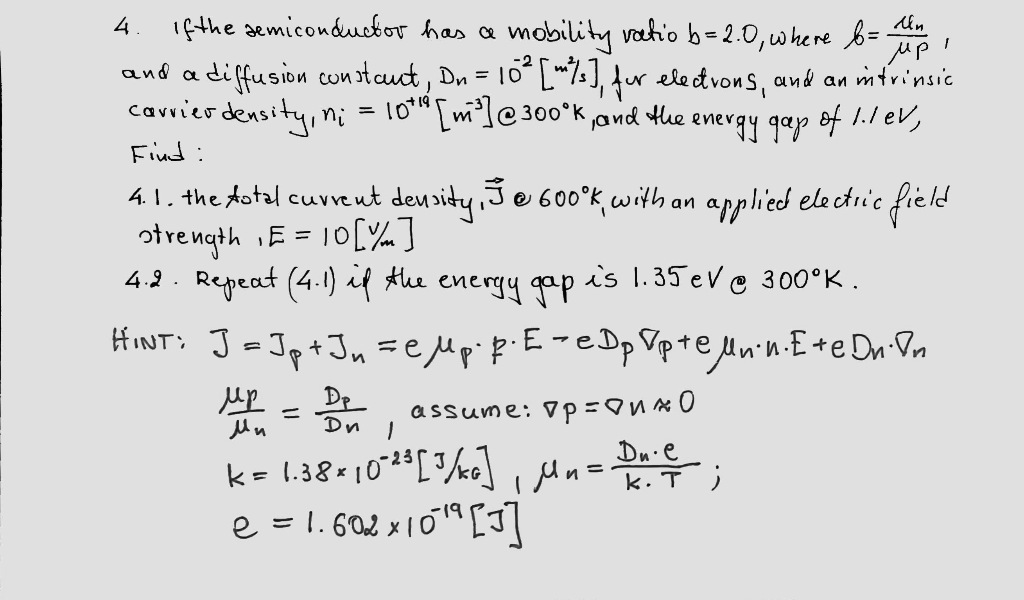 4. If the semiconductor has a mobility ratio b=2.0, where b = μn/μp,
and a diffusion constant, Dn = 10⁻² [m²/s], for electrons, and an intrinsic
carrier density, ni = 10⁺¹⁹ [m⁻³] @ 300°K, and the energy gap of 1.1 eV,
Find:
4.1. the total current density, J⃗ @ 600°K, with an applied electric field
strength, E = 10 [V/m]
4.2. Repeat (4.1) if the energy gap is 1.35 eV @ 300°K.
HINT: J = Jp + Jn = e μp·p·E - eDp∇p + e μn·n·E + eDn·∇n
μp/μn = Dp/Dn, assume: ∇p = ∇n ≈ 0
k = 1.38 × 10⁻²³ [J/kG], μn = Dn·e/k·T ;
e = 1.602 × 10⁻¹⁹ [J]